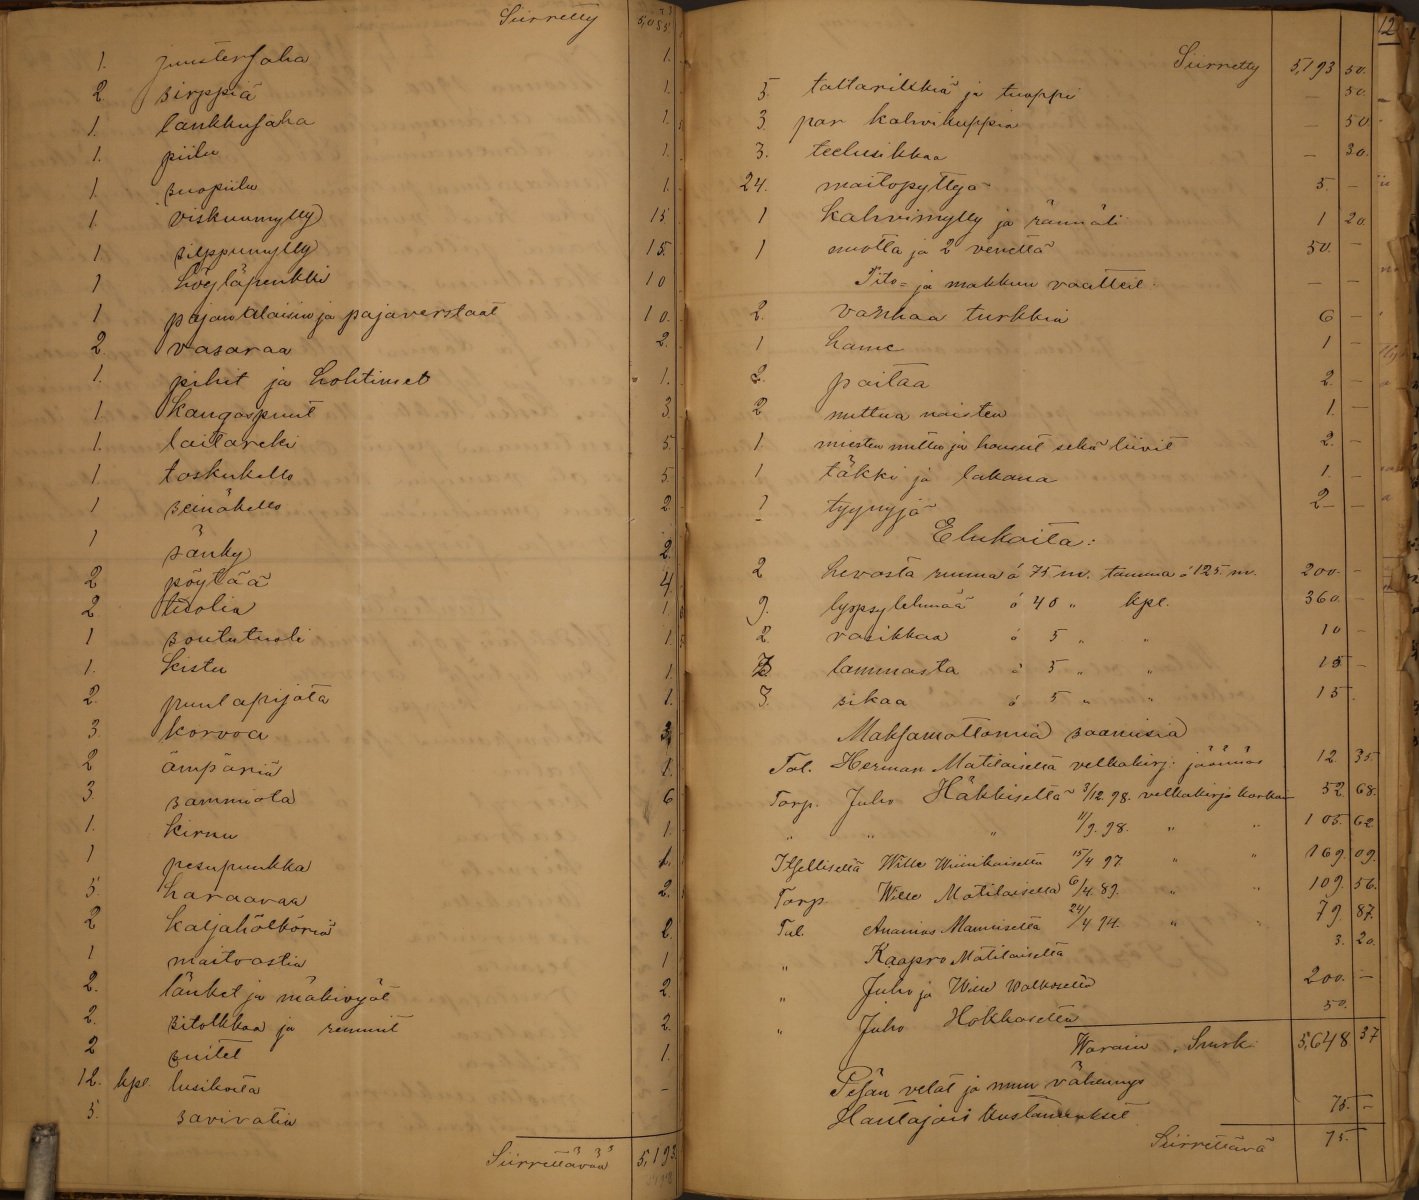 Siirretty 5,055
1. juustersaha 1.
2. sirppiä 1.
1. lankkusaha 1.
1. piilu 1.
1. suopiilu 1.
1. viskuumylly 15
1 silppumylly 15.
1 höyläpenkki 10
1 pajan alaisin ja pajaverstaat 10.
2. vasaraa 2.
1. pihit ja hohtimet 1.
1. Kangaspuut 3.
1. laitareki 5.
1. taskukello 5.
1 seinäkello 2
1 sänky 2.
2 pöytää 4
2. tuolia 1.
1 soututuoli 1.
1. Kistu 1.
2. puulapijota 1.
3. korvoa 3
2 ämpäriä 1.
3. sammiota 6
1. kirnu 1.
1 pesupunkka 1.
5. haraavaa 2.
2 kaljahölköriä 2.
1 maitoastia 1
2. länket ja mäkivyöt 2.
2. sitolkkaa ja remmit 2.
2 suitet 1.
12. kpl. lusikoita –
5. savivatia
Siirrettävää 5,193.
12
Siirretty 5,193 50.
5. taltarikkiä ja tuoppi – 50.
3. par kahvikuppia – 50
3. teelusikkaa – 30.
24. maitopyttyä 5 –
1 Kahvimylly ja rännäli 1 20.
1 nuotta ja 2 venettä 50. –
Pito= ja makkuu vaatteit: – –
2. vanhaa turkkia 6 –
1 hame 1 –
2. paitaa 2. –
2 nuttua naisten 1. –
1. miesten nuttu ja housut sekä liivit 2. –
1 täkki ja lakana 1. –
1 tyynyjä 2 –
Elukoita:
2 hevosta ruuna á 75 m. tamma á 125 m. 200. –
9. lypsylehmää á 40 „ kpl. 360. –
2. vasikkaa á 5 „ „ 10 –
3 lammasta á 5 „ „ 15 –
3. sikaa á 5 „ „ 15.
Maksamattomia saamisia
Tal. Herman Matilaiselta velkakirj. jäännös 12 35.
Torp. Juho Häkkiseltä 3/12 98. velkakirja korkoin 52 68.
„ „ „ 11/9. 98. „ „ 105. 62
Itselliseltä Wille Wiinikaiselta 15/4 97 „ „ 169. 09.
Torp. Wille Matilaiselta 6/4. 89. „ „ 109. 56.
Tal. Ananias Manniseltä 24/4 94. „ „ 79. 87.
„ Kaapro Matilaiselta 3. 20.
„ Juho ja Wille Walkoselta 200. –
„ Juho Hokkaselta 50.
Warain Smrk. 5,648 37
Pesän velat ja muu vähennys
Hautajais kustannukset 75. –
Siirrettävä 75.